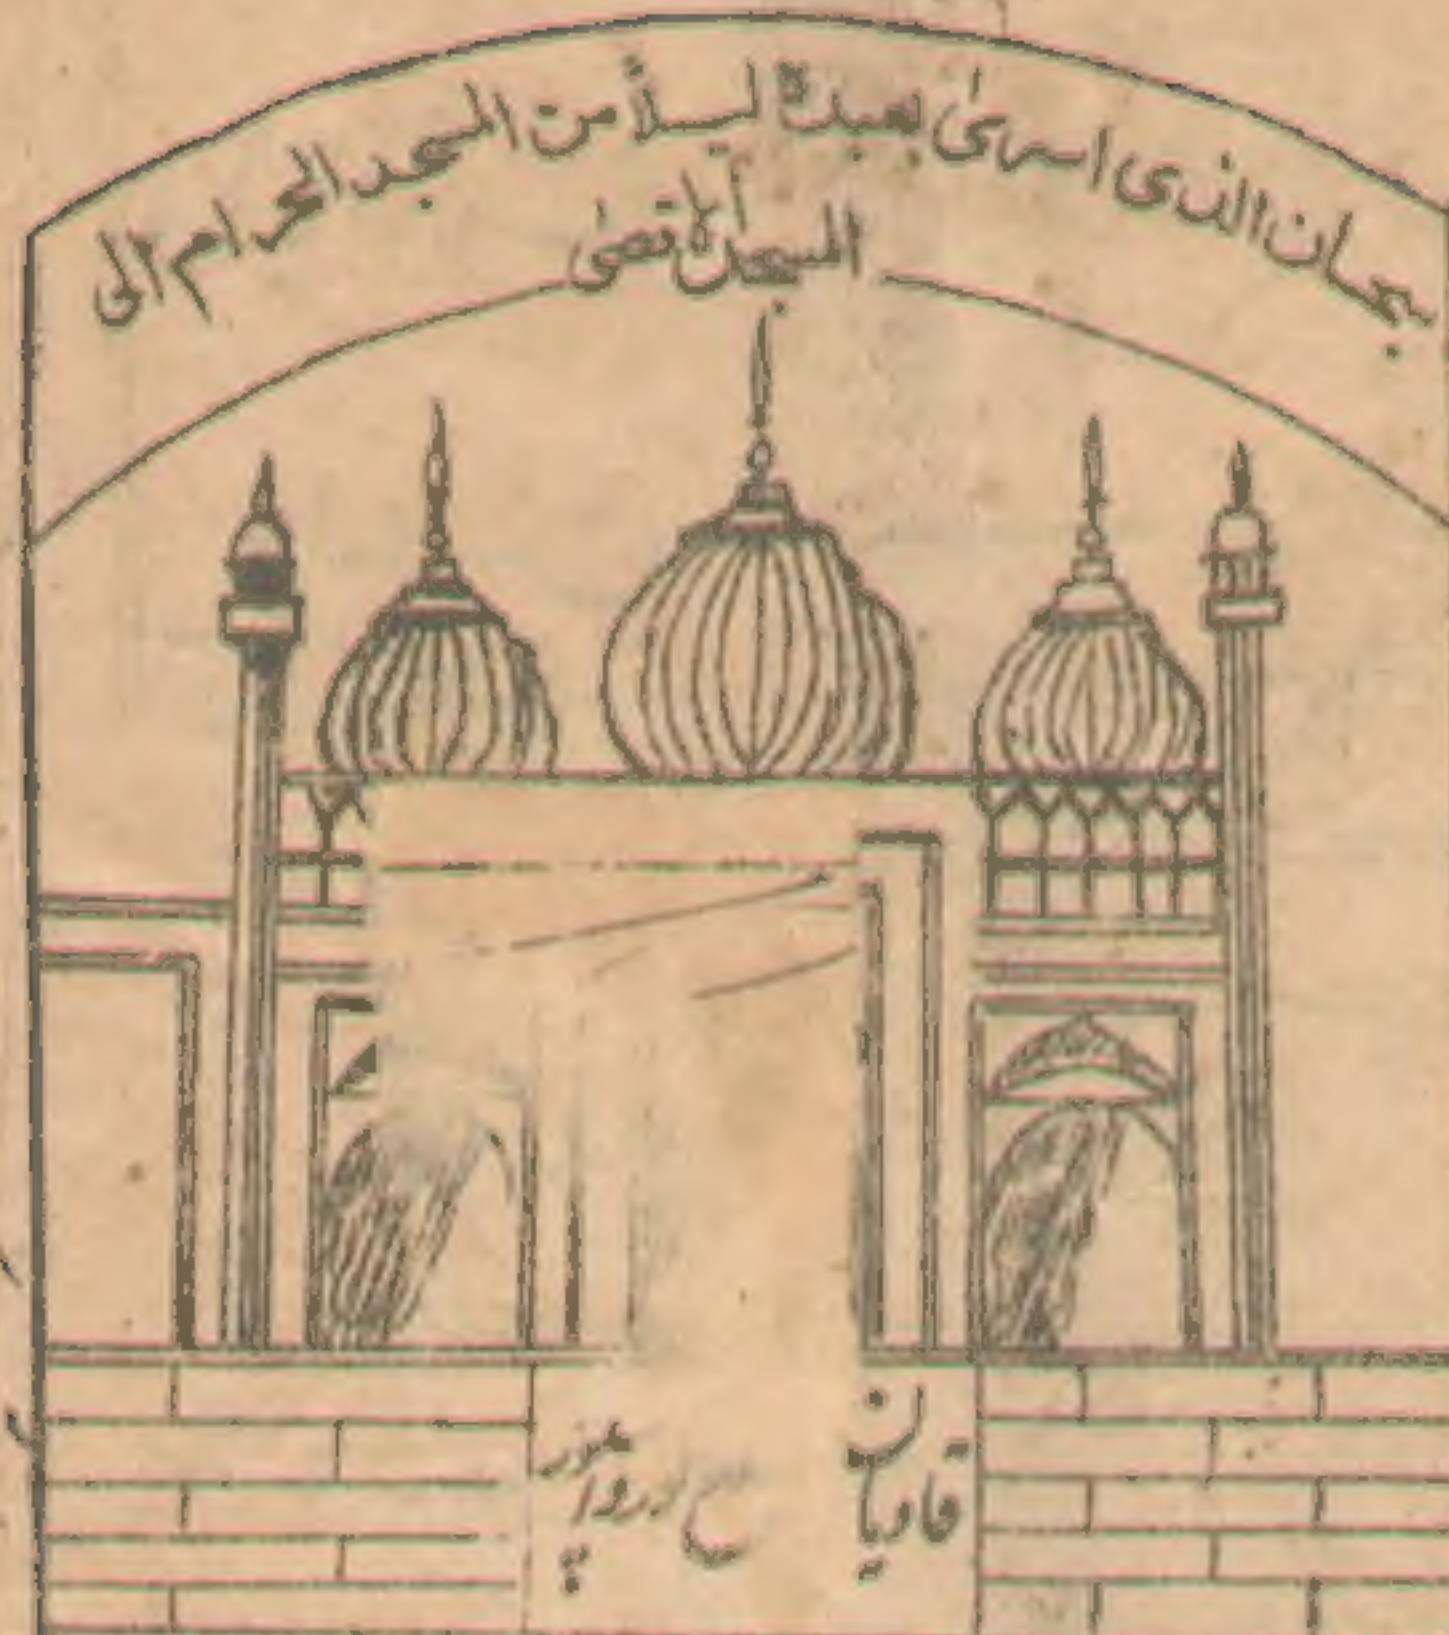 سبحان الذی اسریٰ بعبدہ لیلاً من المسجد الحرام الی
المسجد الاقصیٰ
قادیان